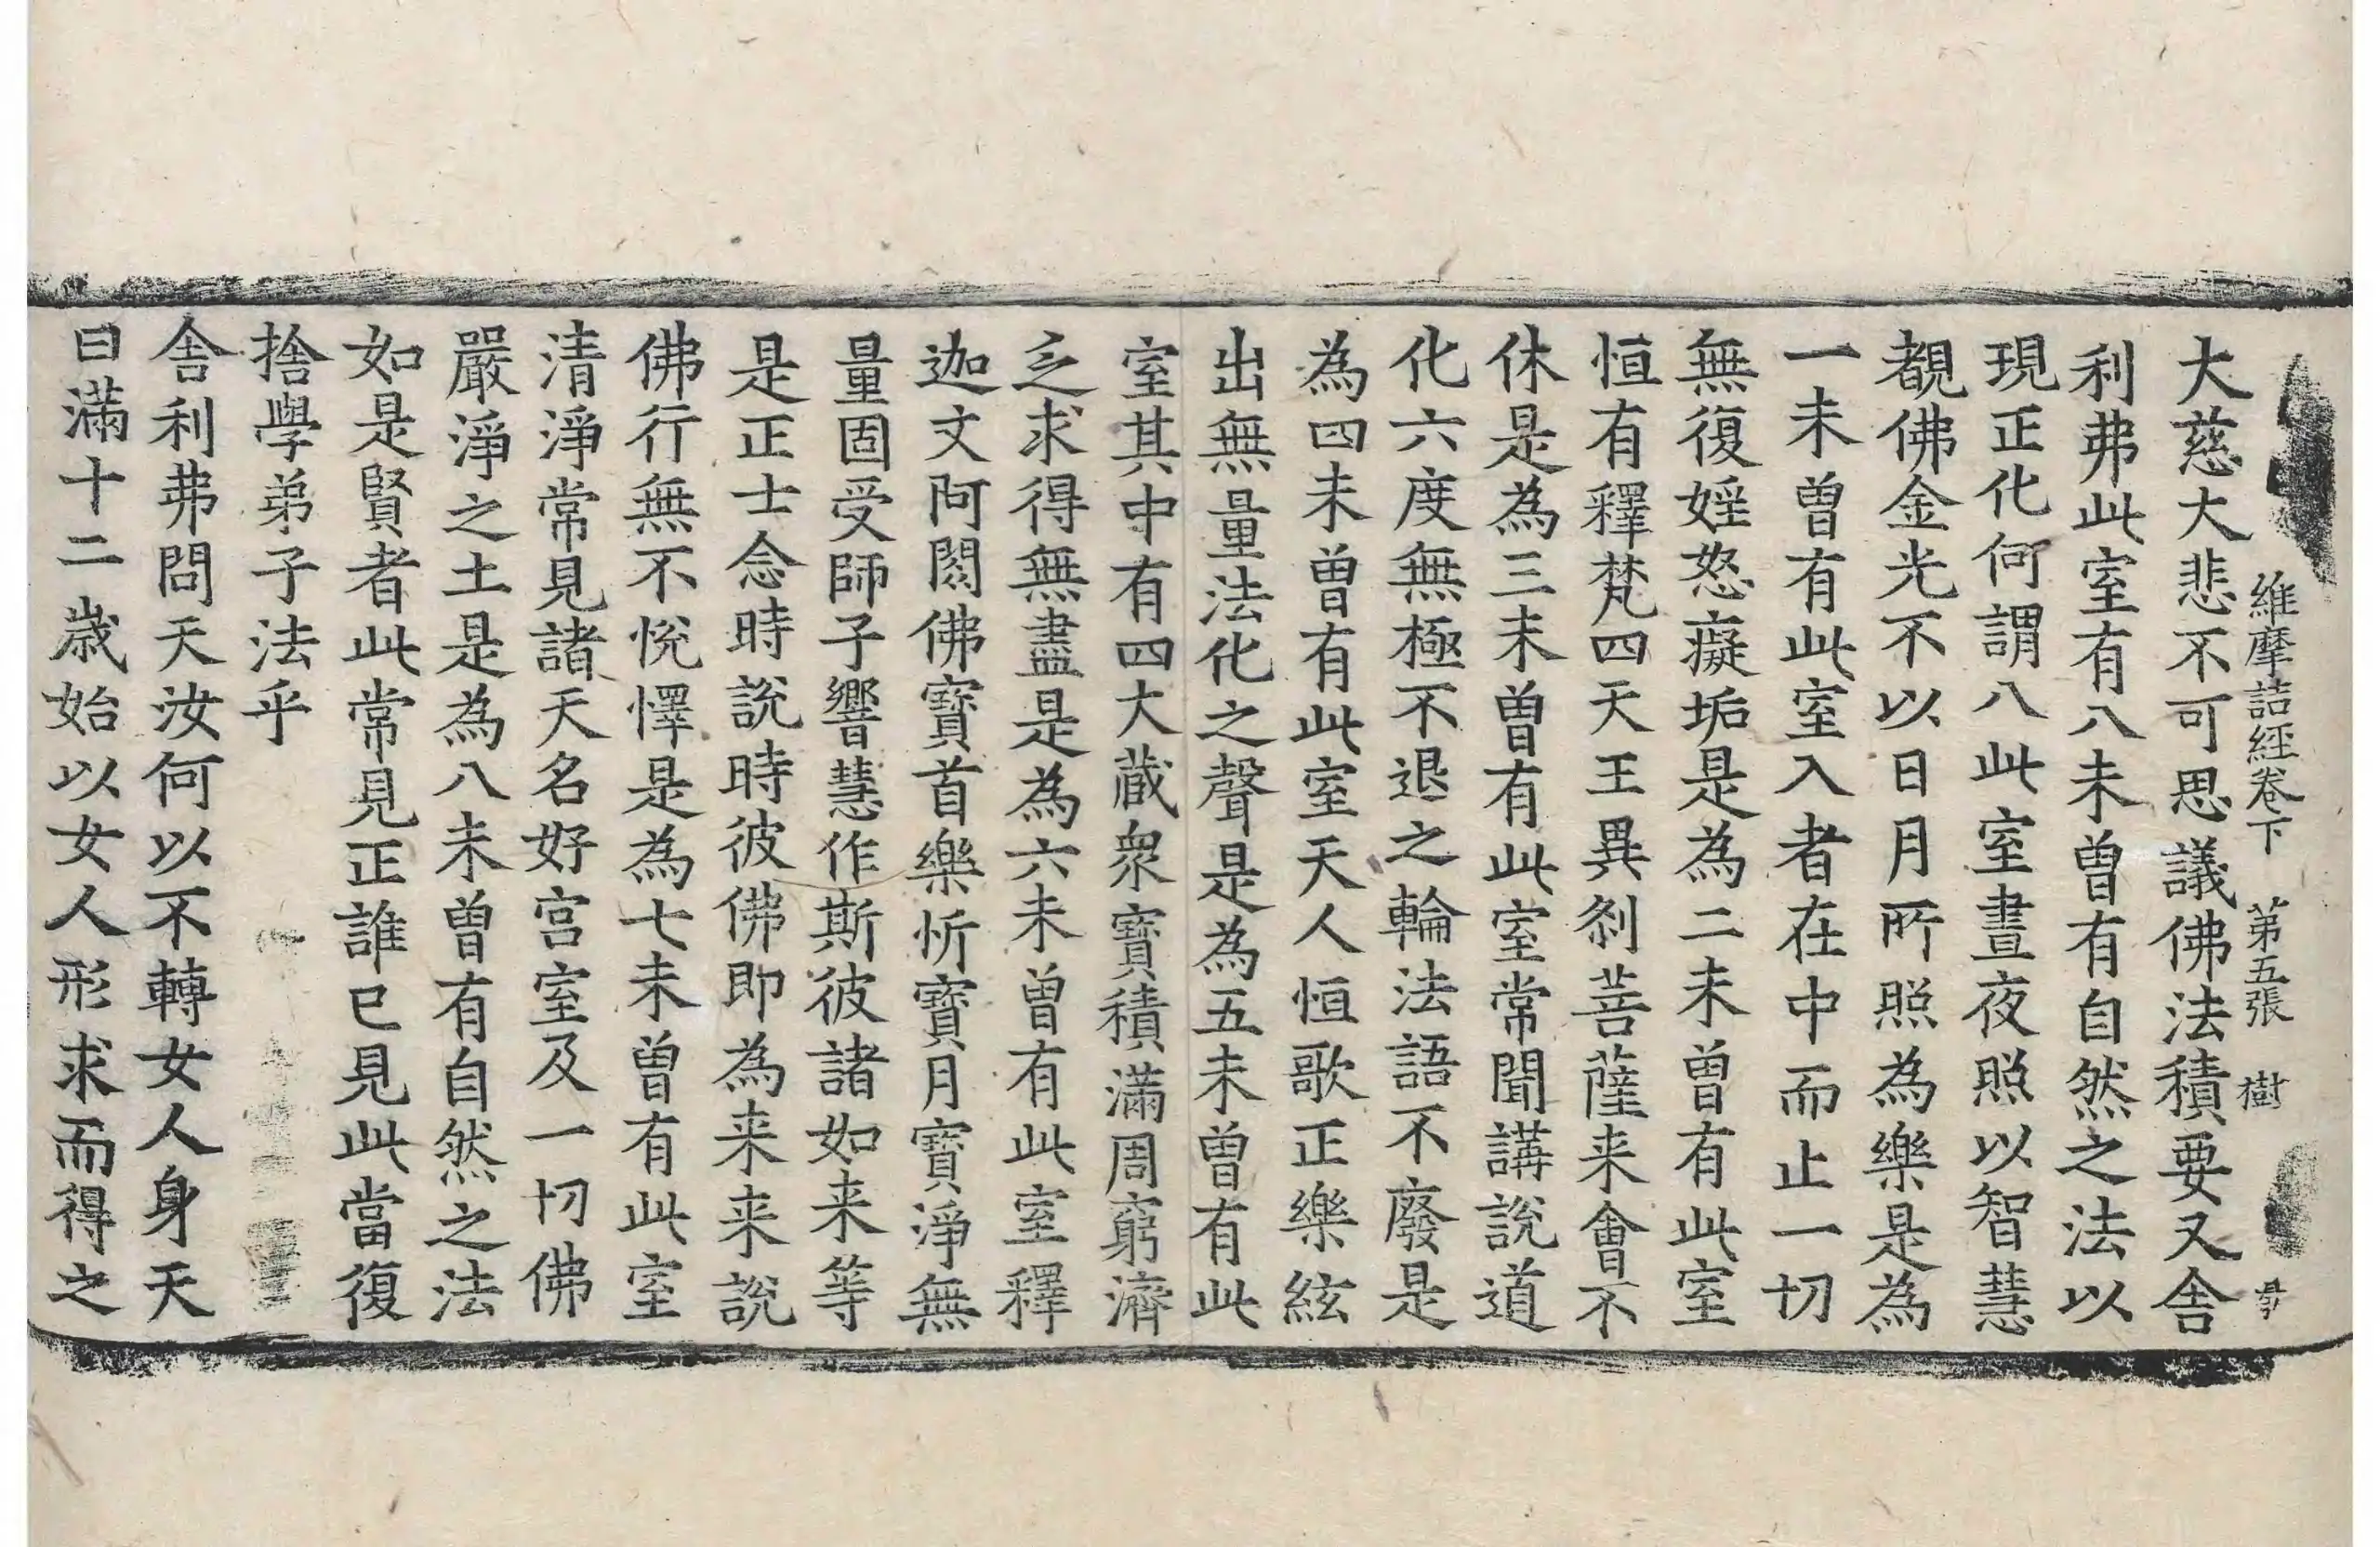 維摩詰經卷下 第五張 樹
大慈大悲不可思議佛法積要又舍
利弗此室有八未曾有自然之法以
現正化何謂八此室晝夜照以智慧
覩佛金光不以日月所照為樂是為
一未曾有此室入者在中而止一切
無復婬怒癡垢是為二未曾有此室
恒有釋梵四天王異剎菩薩来會不
休是為三未曾有此室常聞講說道
化六度無極不退之輪法語不廢是
為四未曾有此室天人恒歌正樂絃
出無量法化之聲是為五未曾有此
室其中有四大藏衆寶積滿周窮濟
乏求得無盡是為六未曾有此室釋
迦文阿閦佛寶首樂忻寶月寶淨無
量固受師子響慧作斯彼諸如来等
是正士念時說時彼佛即為来来說
佛行無不悅懌是為七未曾有此室
清淨常見諸天名好宮室及一切佛
嚴淨之土是為八未曾有自然之法
如是賢者此常見正誰已見此當復
捨學弟子法乎
舍利弗問天汝何以不轉女人身天
曰滿十二歲始以女人形求而得之